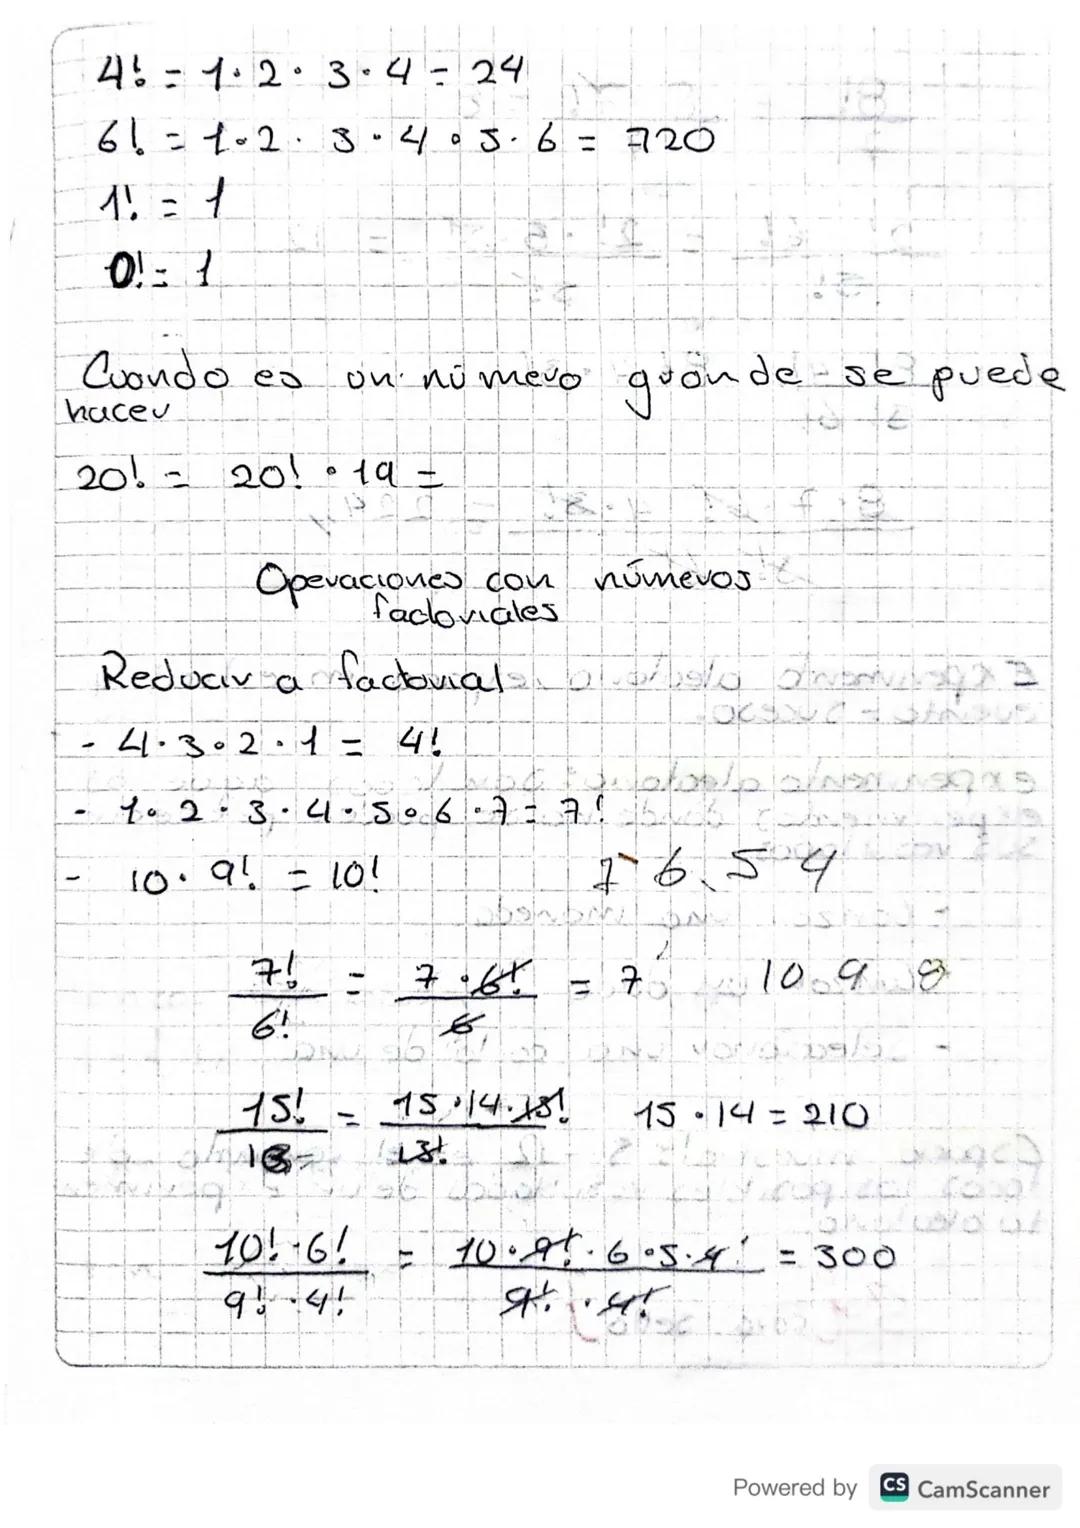 4! = 1·2·3·4 = 24
6! = 1·2·3·4·5·6 = 720
1! = 1
0! = 1
Cuando es un número grande se puede
hacer
20! = 20! · 19 =
Operaciones con números
factoriales
Reducir a factorial
- 4·3·2·1 = 4!
- 1·2·3·4·5·6·7 = 7!
- 10·9! = 10!
7 6 5 4
7!/6! = 7·6!/6 = 7
10 9 8
15!/13 = 15·14·13!/13! 15·14 = 210
10!·6!/9!·4! = 10·9!·6·5·4!/9!·4! = 300
Powered by CS CamScanner